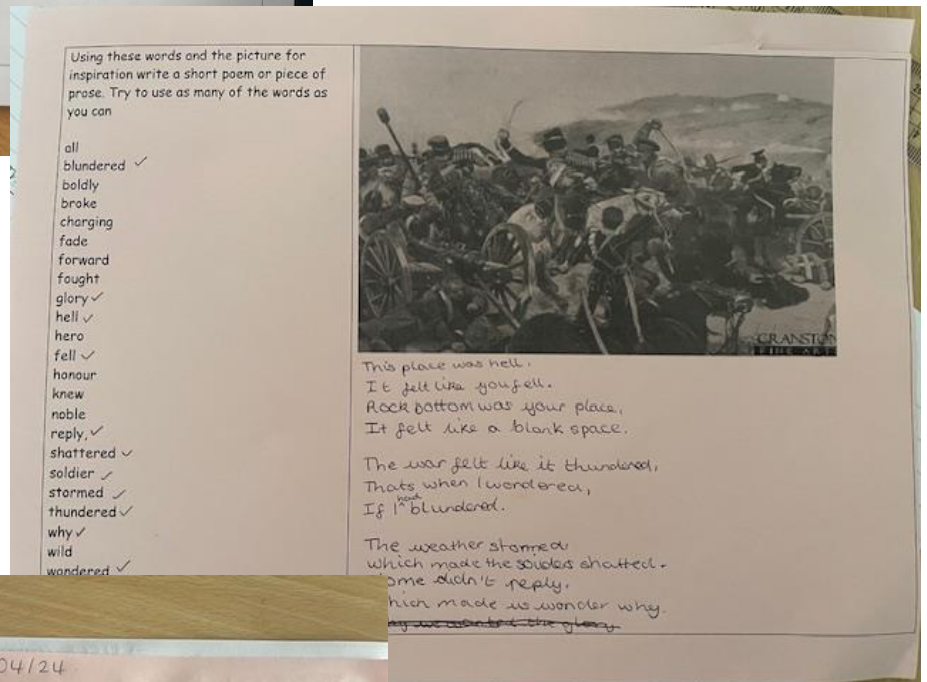 Using these words and the picture for
inspiration write a short poem or piece of
prose. Try to use as many of the words as
you can
all
blundered ✓
boldly
broke
charging
fade
forward
fought
glory ✓
hell ✓
hero
fell ✓
honour
knew
noble
reply, ✓
shattered ✓
soldier ✓
stormed ✓
thundered ✓
why ✓
wild
wondered ✓
CRANSTON
FINE ART
This place was hell.
It felt like you fell.
Rock bottom was your place,
It felt like a blank space.
The war felt like it thundered,
Thats when I wondered,
If I had blundered.
The weather stormed
which made the soilders shatted.
ome didn't reply,
hich made us wonder why.
we wanted the glory
04/24